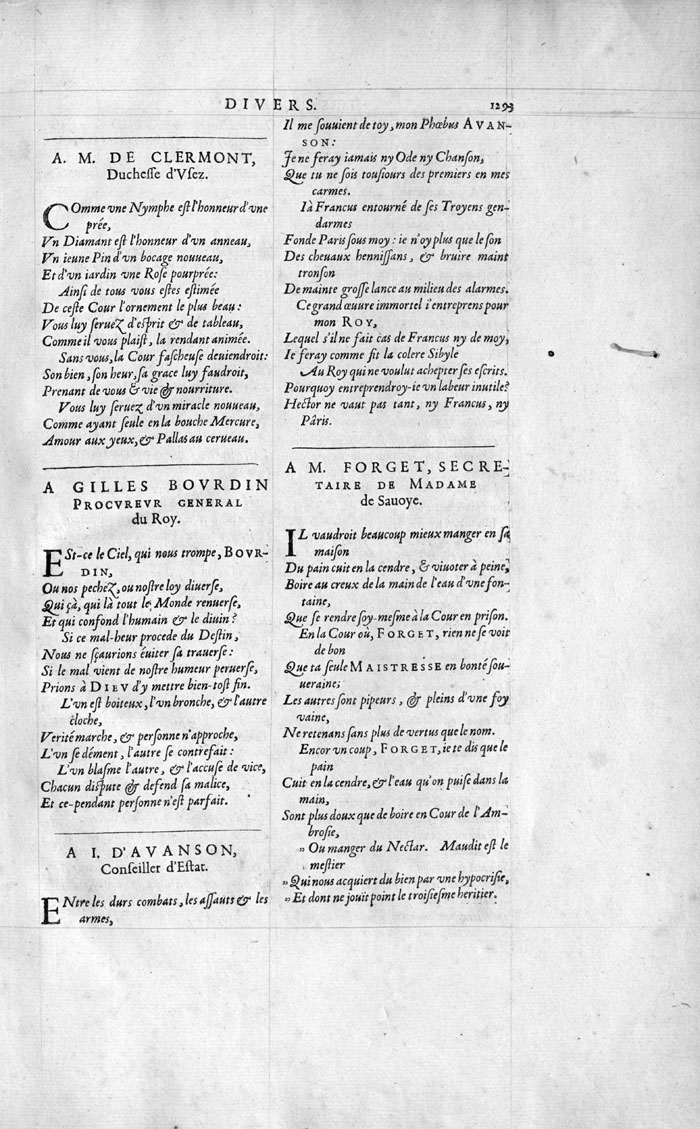 DIVERS. 1293
A. M. DE CLERMONT,
Duchesse d'Vsez.
COmme vne Nymphe est l'honneur d'vne
prée,
Vn Diamant est l'honneur d'vn anneau,
Vn ieune Pin d'vn bocage nouueau,
Et d'vn iardin vne Rose pourprée:
Ainsi de tous vous estes estimée
De ceste Cour l'ornement le plus beau:
Vous luy seruez d'esprit & de tableau,
Comme il vous plaist, la rendant animée.
Sans vous, la Cour fascheuse deuiendroit:
Son bien, son heur, sa grace luy faudroit,
Prenant de vous & vie & nourriture.
Vous luy seruez d'vn miracle nouueau,
Comme ayant seule en la bouche Mercure,
Amour aux yeux, & Pallas au cerueau.
A GILLES BOVRDIN
PROCVREVR GENERAL
du Roy.
ESt-ce le Ciel, qui nous trompe, BOVR-
DIN,
Ou nos pechez, ou nostre loy diuerse,
Qui çà, qui là tout le Monde renuerse,
Et qui confond l'humain & le diuin?
Si ce mal-heur procede du Destin,
Nous ne sçaurions éuiter sa trauerse:
Si le mal vient de nostre humeur peruerse,
Prions à DIEV d'y mettre bien-tost fin.
L'vn est boiteux, l'vn bronche, & l'autre
cloche,
Verité marche, & personne n'approche,
L'vn se dément, l'autre se contrefait:
L'vn blasme l'autre, & l'accuse de vice,
Chacun dispute & defend sa malice,
Et ce-pendant personne n'est parfait.
A I. D'AVANSON,
Conseiller d'Estat.
ENtre les durs combats, les assauts & les
armes,
Il me souuient de toy, mon Phœbus AVAN-
SON:
Je ne feray iamais ny Ode ny Chanson,
Que tu ne sois tousiours des premiers en mes
carmes.
Ià Francus entourné de ses Troyens gen-
darmes
Fonde Paris sous moy: ie n'oy plus que le son
Des cheuaux hennissans, & bruire maint
tronson
De mainte grosse lance au milieu des alarmes.
Ce grand œuure immortel i'entreprens pour
mon ROY,
Lequel s'il ne fait cas de Francus ny de moy,
Ie feray comme fit la colere Sibyle
Au Roy qui ne voulut achepter ses escrits.
Pourquoy entreprendroy-ie vn labeur inutile?
Hector ne vaut pas tant, ny Francus, ny
Pâris.
A M. FORGET, SECRE-
TAIRE DE MADAME
de Sauoye.
IL vaudroit beaucoup mieux manger en sa
maison
Du pain cuit en la cendre, & viuoter à peine,
Boire au creux de la main de l'eau d'vne fon-
taine,
Que se rendre soy-mesme à la Cour en prison.
En la Cour où, FORGET, rien ne se voit
de bon
Que ta seule MAISTRESSE en bonté sou-
ueraine;
Les autres sont pipeurs, & pleins d'vne foy
vaine,
Ne retenans sans plus de vertus que le nom.
Encor vn coup, FORGET, ie te dis que le
pain
Cuit en la cendre, & l'eau qu'on puise dans la
main,
Sont plus doux que de boire en Cour de l'Am-
brosie,
» Ou manger du Nectar. Maudit est le
mestier
» Qui nous acquiert du bien par vne hypocrisie,
» Et dont ne jouït point le troisiesme heritier.